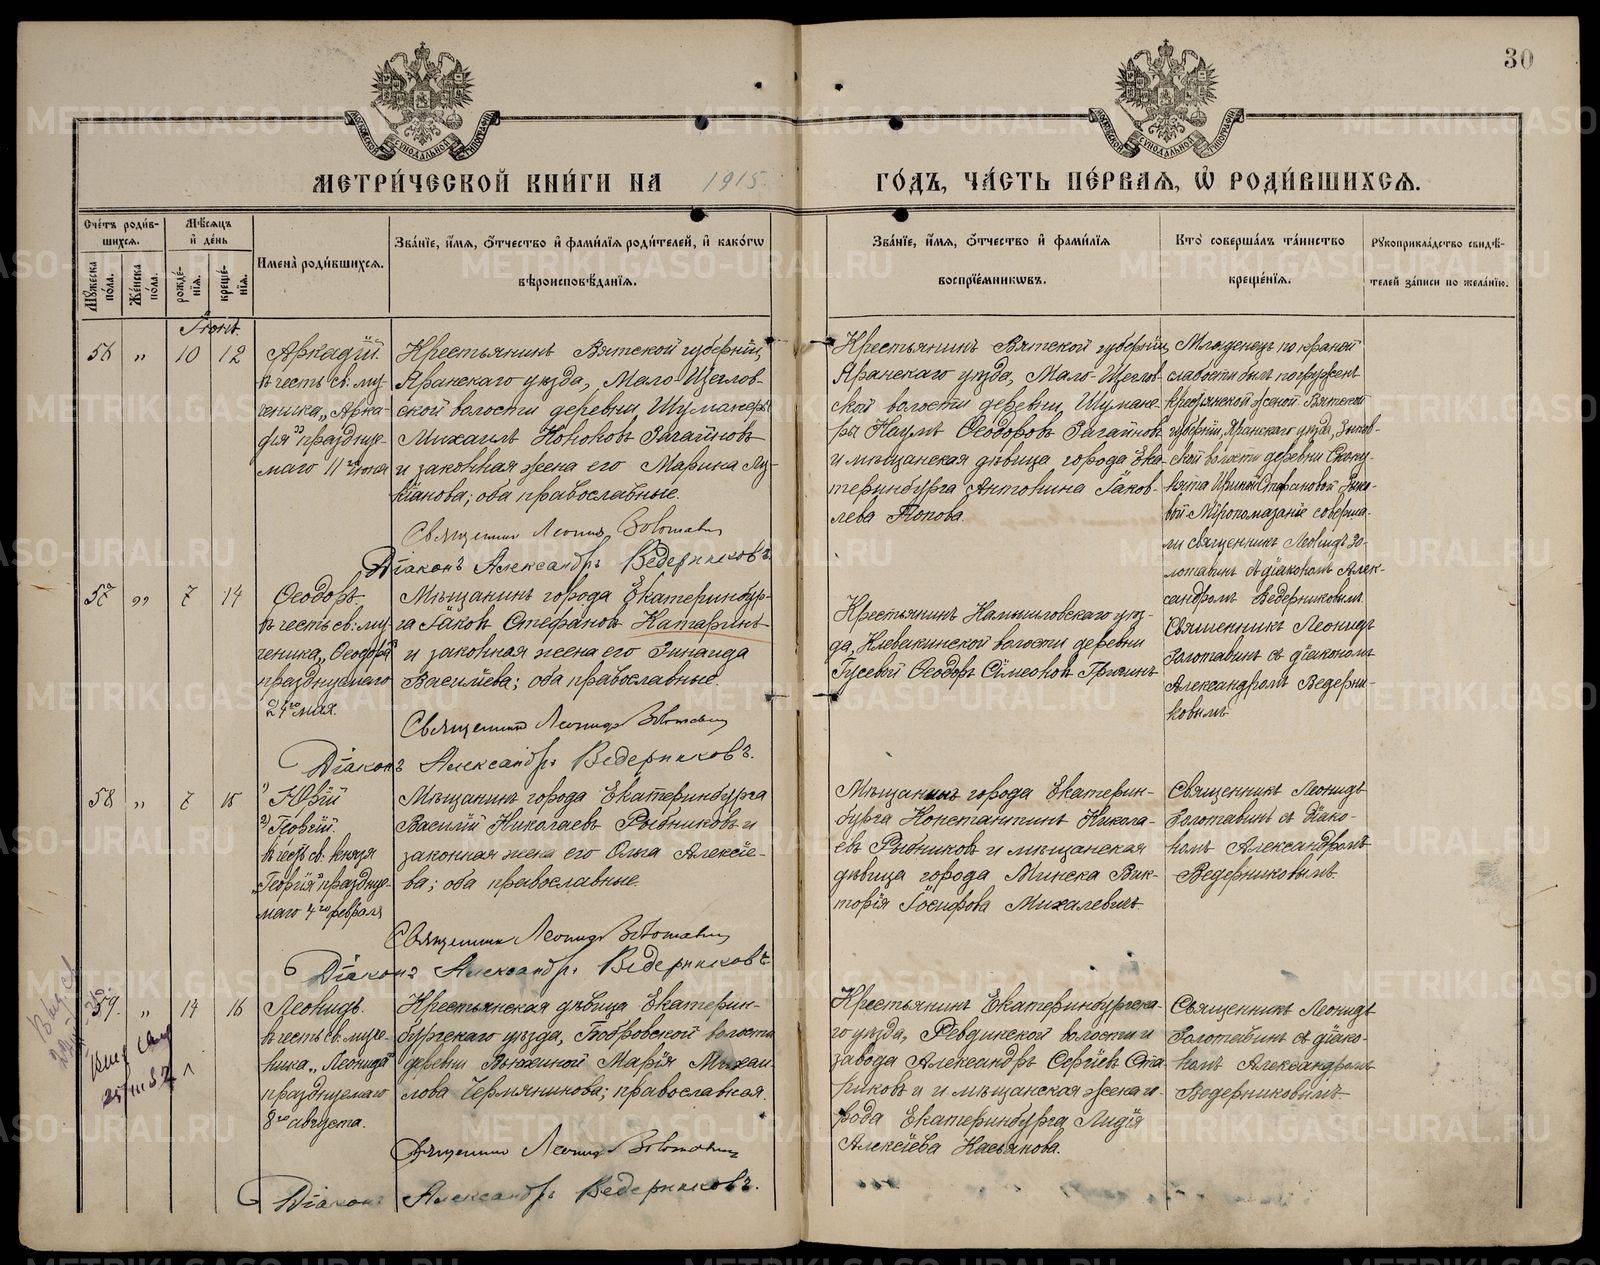 30
МОСКОВСКОЙ СѴНОДАЛЬНОЙ ТИПОГРАФІИ
МОСКОВСКОЙ СѴНОДАЛЬНОЙ ТИПОГРАФІИ
МЕТРИ́ЧЕСКОЙ КНИ́ГИ НА 1915. ГО́ДЪ, ЧА́СТЬ ПЕ́РВАЯ, Ѡ҆ РОДИ́ВШИХСЯ.
Сче́тъ роди́в-
шихся.
Мѣ́сяцъ
и҆ де́нь
Мꙋ́жеска по́ла.
Же́нска по́ла.
рожде́-
нїя.
креще́-
нїя.
Имена̀ роди́вшихся.
Зва́нїе, и҆́мя, ѻ҆́тчество и҆ фами́лїя роди́телей, и҆ како́гѡ
вѣроисповѣ́данїя.
Зва́нїе, и҆́мя, ѻ҆́тчество и҆ фами́лїя
воспрїе́мникѡвъ.
Кто̀ соверша́лъ та́инство
креще́нїя.
Рꙋкоприкла́дство свидѣ́-
телей за́писи по жела́нїю.
Іюнь.
56 „ 10 12
Аркадій.
въ честь св. му-
ченика „Арка-
дія" праздну-
емаго
Крестьянинъ Вятской губерніи,
Яранскаго уѣзда, Мало-Щеглов-
ской волости деревни Шуманеръ
Михаилъ Загайновъ
и законная жена его Марина Лу-
кіанова; оба православные.
Священникъ Леонидъ Золотавинъ
Діаконъ Александръ Ведерниковъ.
Крестьянинъ Вятской губерніи,
Яранскаго уѣзда, Мало-Щеглов-
ской волости деревни Шумане-
ры Наумъ Ѳеодоровъ Загайновъ
и мѣщанская дѣвица города Ека-
теринбурга Антонина Іаков-
лева Попова.
Младенецъ по крайней
слабости былъ погруженъ
крестьянской женой Вятской
губерніи, Яранскаго уѣзда,
ской волости деревни
Ириной Стефановой
вой. Мѵропомазаніе соверша-
ли священникъ Леонидъ Зо-
лотавинъ съ діакономъ Алек-
сандромъ Ведерниковымъ.
57 „ 7 14
Ѳеодоръ
въ честь св. му-
ченика „Ѳеодора"
празднуемаго
21го мая.
Мѣщанинъ города Екатеринбур-
га Іаковъ Стефановъ Катаринъ
и законная жена его Зинаида
Василіева; оба православные.
Священникъ Леонидъ Золотавинъ
Діаконъ Александръ Ведерниковъ.
Крестьянинъ Камышловскаго уѣз-
да, Клевакинской волости деревни
Гусевой Ѳеодоръ Сѵмеоновъ
Священникъ Леонидъ
Золотавинъ съ діакономъ
Александромъ Ведерни-
ковымъ
58 „ 7 15
1) Юрій
2) Георгій.
въ честь св. князя
„Георгія" праздну-
емаго 4го февраля
Мѣщанинъ города Екатеринбурга
Василій Николаевъ Рыбниковъ и
законная жена его Ольга Алексіе-
ва; оба православные.
Священникъ Леонидъ Золотавинъ
Діаконъ Александръ Ведерниковъ
Мѣщанинъ города Екатерин-
бурга Константинъ Никола-
евъ Рыбниковъ и мѣщанская
дѣвица города Минска Вик-
торія Іосифова Михалевичъ.
Священникъ Леонидъ
Золотавинъ съ Діако-
номъ Александромъ
Ведерниковымъ.
59. „ 14 16
Леонидъ.
въ честь св. муче-
ника „Леонида"
празднуемаго
8го августа.
Крестьянская дѣвица Екатерин-
бургскаго уѣзда, Бобровской волости
деревни Марія Михаи-
лова Чермянинова; православная.
Священникъ Леонидъ Золотавинъ
Діаконъ Александръ Ведерниковъ.
Крестьянинъ Екатеринбургска-
го уѣзда, Ревдинской волости и
завода Александръ Сергіевъ Ста-
риковъ и мѣщанская жена го-
рода Екатеринбурга Лидія
Алексіева Касьянова.
Священникъ Леонидъ
Золотавинъ съ діако-
номъ Александромъ
Ведерниковымъ
METRIKI.GASO-URAL.RU